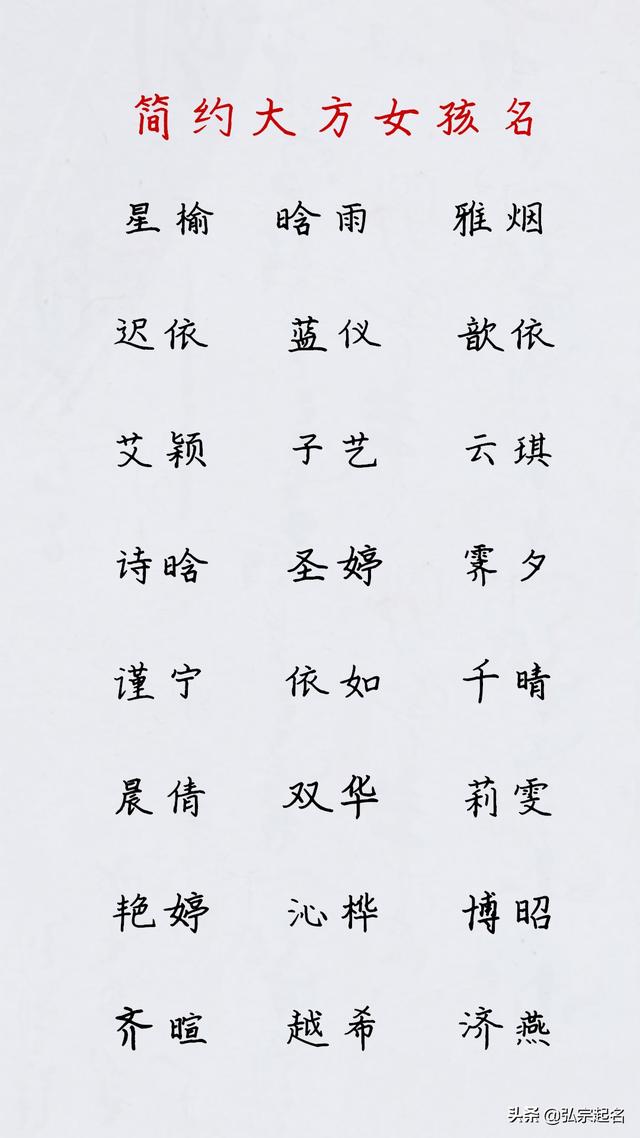 简约大方女孩名
星榆 晗雨 雅烟
迟依 蓝仪 歆依
艾颖 子艺 云琪
诗晗 圣婷 霁夕
谨宁 依如 千晴
晨倩 双华 莉雯
艳婷 沁桦 博昭
齐暄 越希 济燕
头条 @弘宗起名